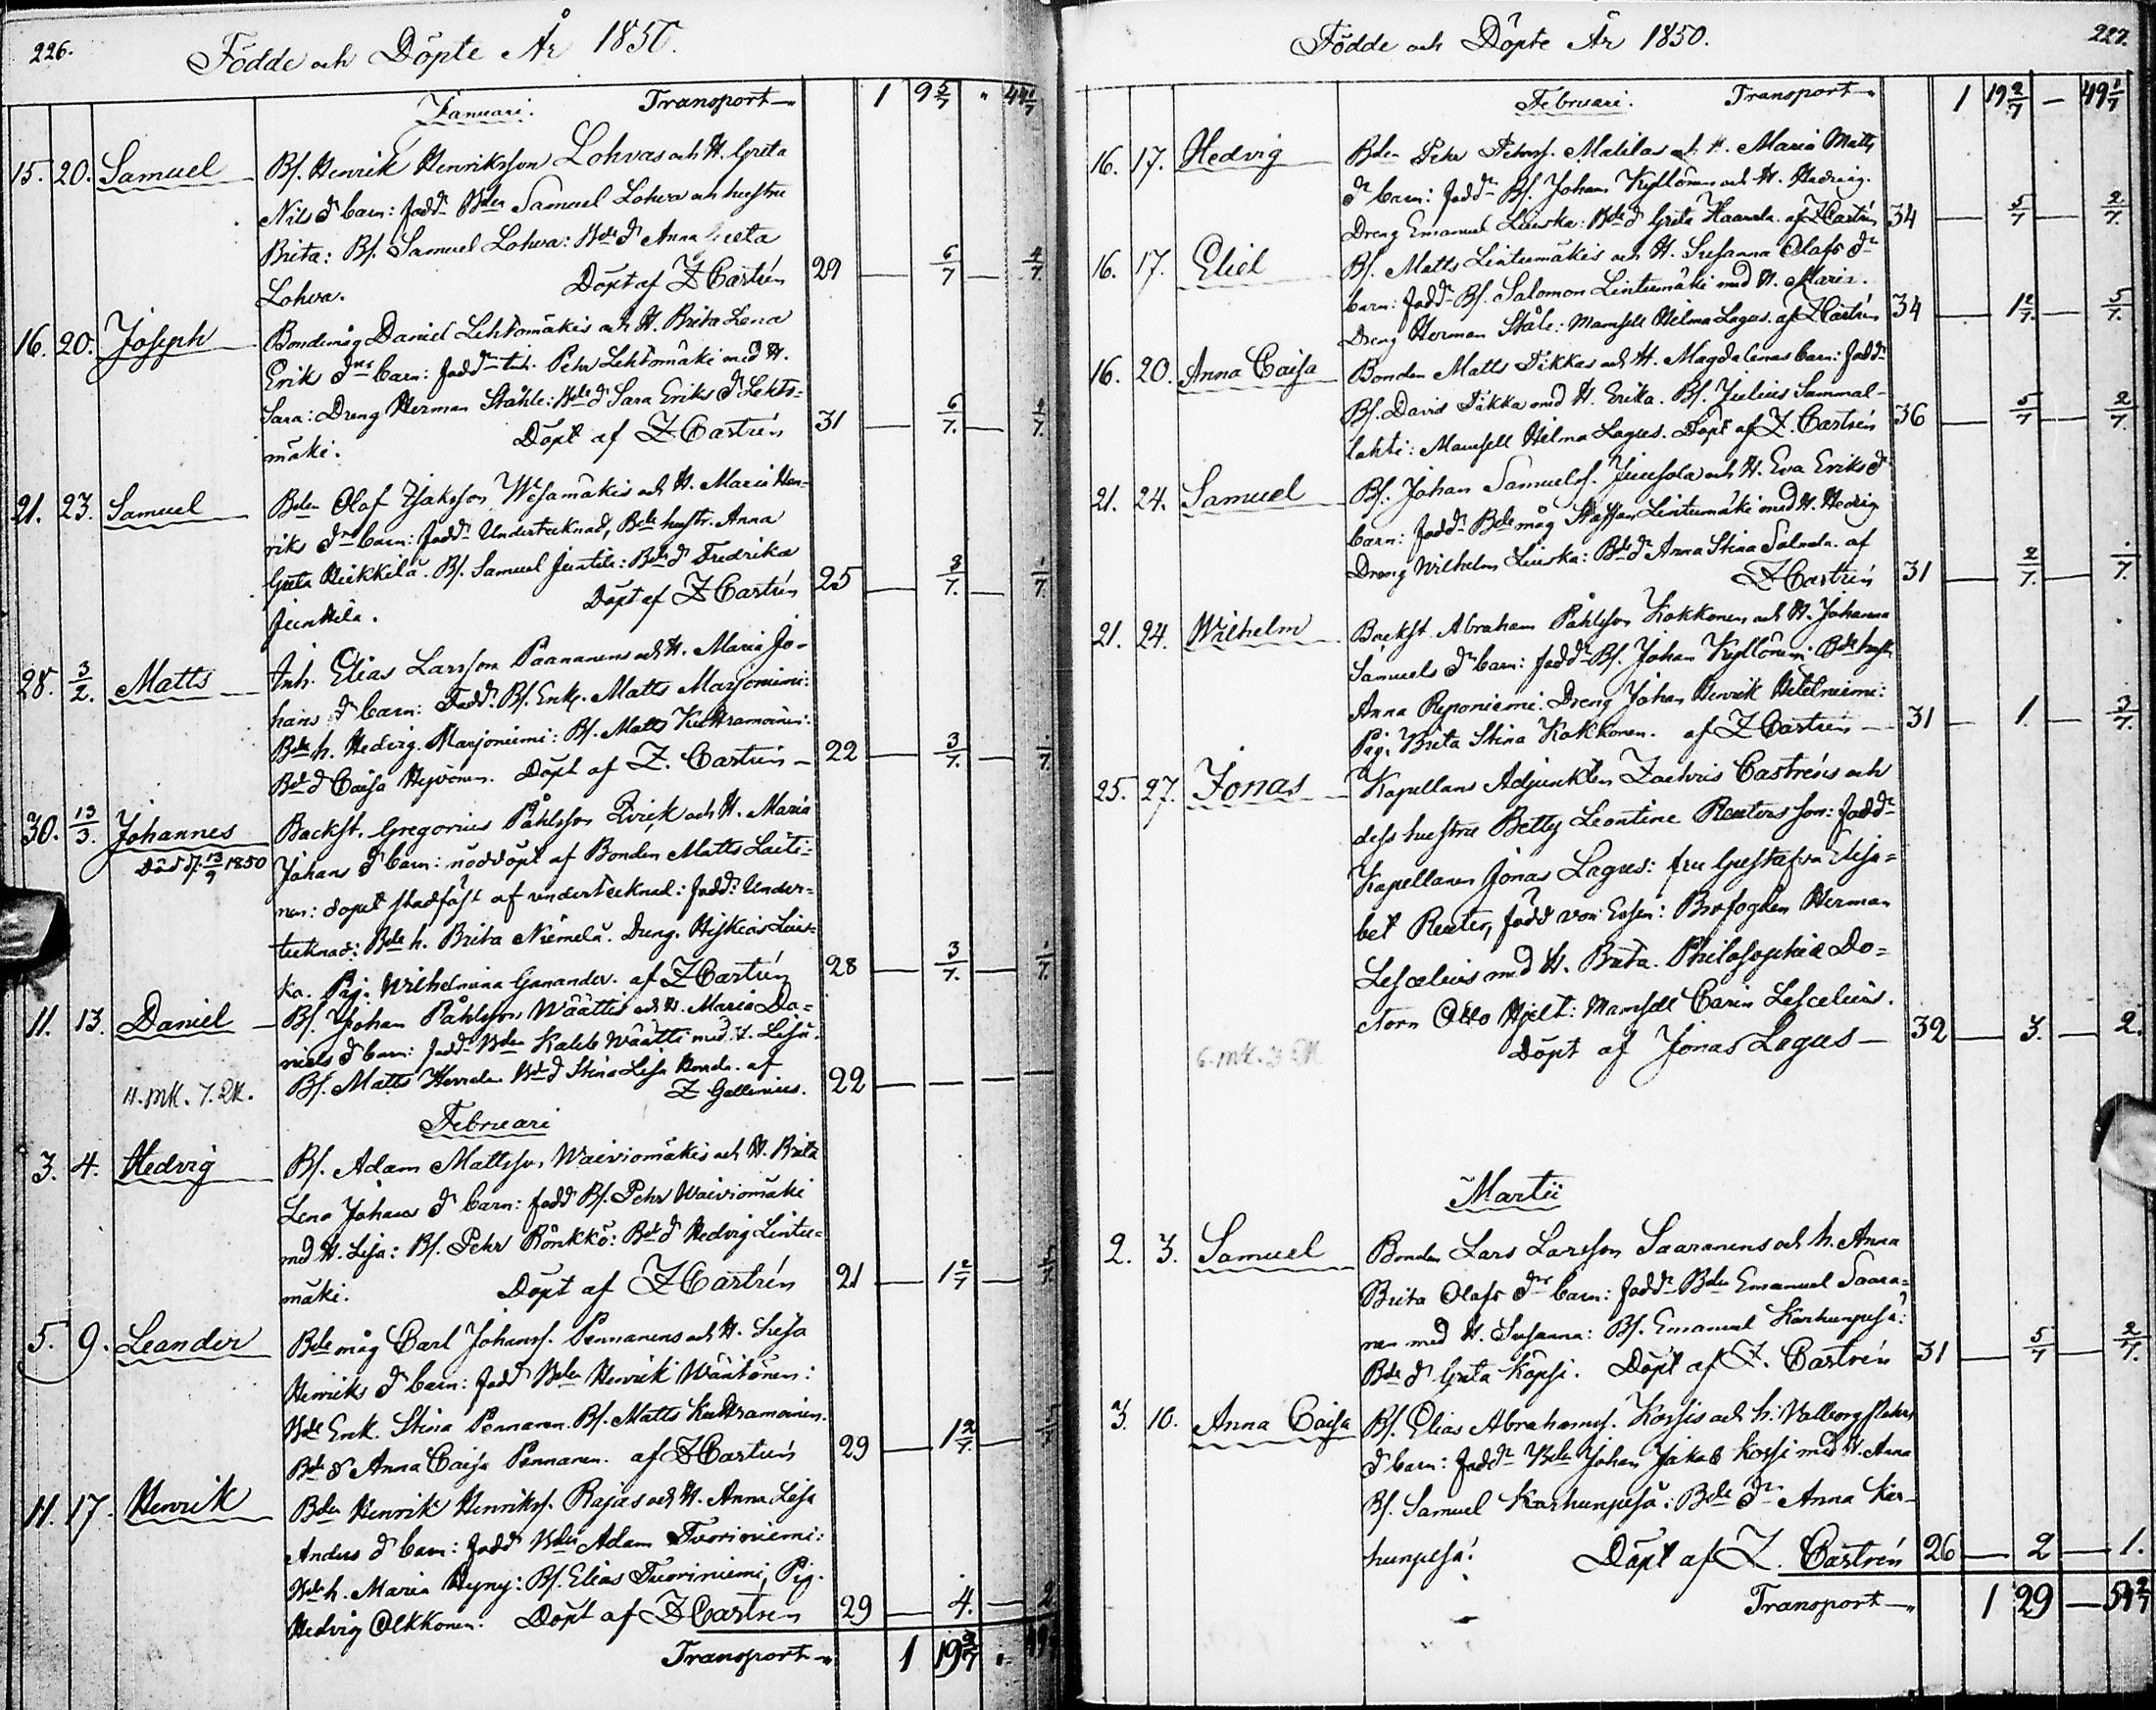 226.
Födde och Döpte År 1850.
Januari. Transport 1 9 5/7 " 44 1/7
15. 20. Samuel Bs. Henrik Henriksson Lohvas och H. Greta
Nils dr barn: fadd. Bden Samuel Lohva och hustru
Brita: Bs. Samuel Lohva: Bde d Anna Greta
Lohva. Döpt af Z Castrén 29 — 6/7 — 2/7
16. 20. Joseph Bondemåg Daniel Lehtomäkis och H. Brita Lena
Eriks drs barn: fadd. Inh. Pehr Lehtomäki med H.
Sara: Dreng Herman Ståhle: Bde d Sara Eriks dr Lehto-
mäki. Döpt af Z Castrén 31 — 6/7. — 2/7.
21. 23. Samuel Bden Olof Isaksson Wesamäkis och H. Maria Hen-
riks drs barn: fadd. Undertecknad, Bde hustr. Anna
Greta Heikkilä. Bs. Samuel Junttila: Bde d Fredrika
Junttila. Döpt af Z Castrén 25 — 3/7. — 1/7.
28. 3/2. Matts Inh. Elias Larsson Paananens och H. Maria Jo-
hans d barn: Fadd. Bs. Enkl. Matts Marjoniemi:
Bde h. Hedvig Marjoniemi: Bs. Matts Kuttramoinen:
Bde d Caisa Hyvönen. Döpt af Z. Castrén — 22 — 3/7. — 1/7.
30. 13/3. Johannes Backst. Gregorius Påhlsson och H. Maria
Död d. 13/9 1850 Johans d barn: nöddöpt af Bonden Matts Laiti-
nen: dopet stadfäst af undertecknad: fadd. Under-
tecknad: Bde h. Brita Niemelä. Dreng. Hiskias Lius-
ka. Pig. Wilhelmina Ganander. af Z Castrén 28 — 3/7. — 1/7.
11. 13. Daniel Bs. Johan Påhlsson Wäättis och H. Maria Da-
niels d barn: fadd. Bden Kaleb Wäätti med H. Lisa.
Bs. Matts Bde d Stina Lisa af
11. mk. 7. Qk. Z Gallenius. 22 — — — —
Februari
3. 4. Hedvig Bs. Adam Mattsson Waiviomäkis och H. Brita
Lena Johans d barn: fadd Bs. Pehr Waiviomäki
med H. Lisa: Bs. Pehr Rönkkö: Bde d Hedvig Lintu-
mäki. Döpt af Z Castrén 21 — 1 2/7 — 5/7.
5. 9. Leander Bde måg Carl Johanss. Pennanens och H. Lisa
Henriks d barn: fadd Bden Henrik Wäntönen:
Bde Enk. Stina Pennanen. Bs. Matts Kuttramoinen.
Bde d Anna Caisa Pennanen. af Z Castrén 29 — 1 2/7. —
11. 17. Henrik Bden Henrik Henrikss. Rajas och H. Anna Lisa
Anders d barn: fadd Bden Adam Tuoriniemi:
Bde h. Maria Hyny: Bs. Elias Tuoriniemi, Pig.
Hedvig Olkkonen. Döpt af Z Castrén 29 — 4. — 2
Transport 1 19 2/7
227.
Födde och Döpte År 1850.
Februari. Transport 1 19 2/7 — 49 1/7
16. 17. Hedvig Bden Pehr Pehrss. Matilas och H. Maria Matts
dr barn: fadd. Bs. Johan Kyllönen och H. Hedvig.
Dreng Emanuel Liuska: Bde d Greta Haarala. af Z Castrén 34 — 5/7 — 2/7.
16. 17. Eliel Bs. Matts Lintumäkis och H. Susanna Olofs dr
barn: fadd. Bs. Salomon Lintumäki med H. Maria.
Dreng Herman Ståle: Mamsell Hilma Lagus. af Z Castrén 34 — 1 2/7. — 5/7.
16. 20. Anna Caisa Bonden Matts Tikkas och H. Magdalenas barn: fadd.
Bs. David Tikka med H. Erika. Bs. Julius Sammal-
lahti: Mamsell Hilma Lagus. Döpt af Z. Castrén 36 — 5/7 — 2/7.
21. 24. Samuel Bs. Johan Samuelss. Juusola och H. Eva Eriks dr
barn: fadd. Bde måg Staffan Lintumäki med H. Hedvig
Dreng Wilhelm Liuska: Bde d Anna Stina af
Z Castrén 31 — 2/7. — 1/7.
21. 24. Wilhelm Backst. Abraham Påhlsson Kokkonen och H. Johanna
Samuels dr barn: fadd. Bs. Johan Kyllönen: Bde hustr.
Anna Reponiemi. Dreng Johan Henrik Hetelniemi:
Pig. Brita Stina Kokkonen. af Z Castrén — 31 — 1. — 3/7.
25. 27. Jonas Kapellans Adjunkten Zachris Castréns och
dess hustru Betty Leontine Reutersson: fadd.
Kapellanen Jonas Lagus: fru Gustafva Elisa-
bet Reuter, född von Essen: Brofogden Herman
Lescelius med H. Brita. Philosophiæ Do-
ctorn Otto Hjelt: Mamsell Carin Lescelius.
6. mk. 3 Qk Döpt af Jonas Lagus — 32 — 3. — 2.
Martii
2. 3. Samuel Bonden Lars Larsson Saaranens och h. Anna
Brita Olofs drs barn: fadd. Bden Emanuel Saara-
nen med H. Susanna: Bs. Emanuel Karhunpesä:
Bde d Greta Köpsi. Döpt af Z. Castrén 31 — 5/7 — 2/7.
3. 10. Anna Caisa Bs. Elias Abrahamss. Korsis och h. Valborg Pehrs
d barn: fadd. Bden Johan Jakob Korsi med H. Anna
Bs. Samuel Karhunpesä: Bde dr Anna Kar-
hunpesä. Döpt af Z. Castrén 26 — 2 — 1.
Transport 1 29 —